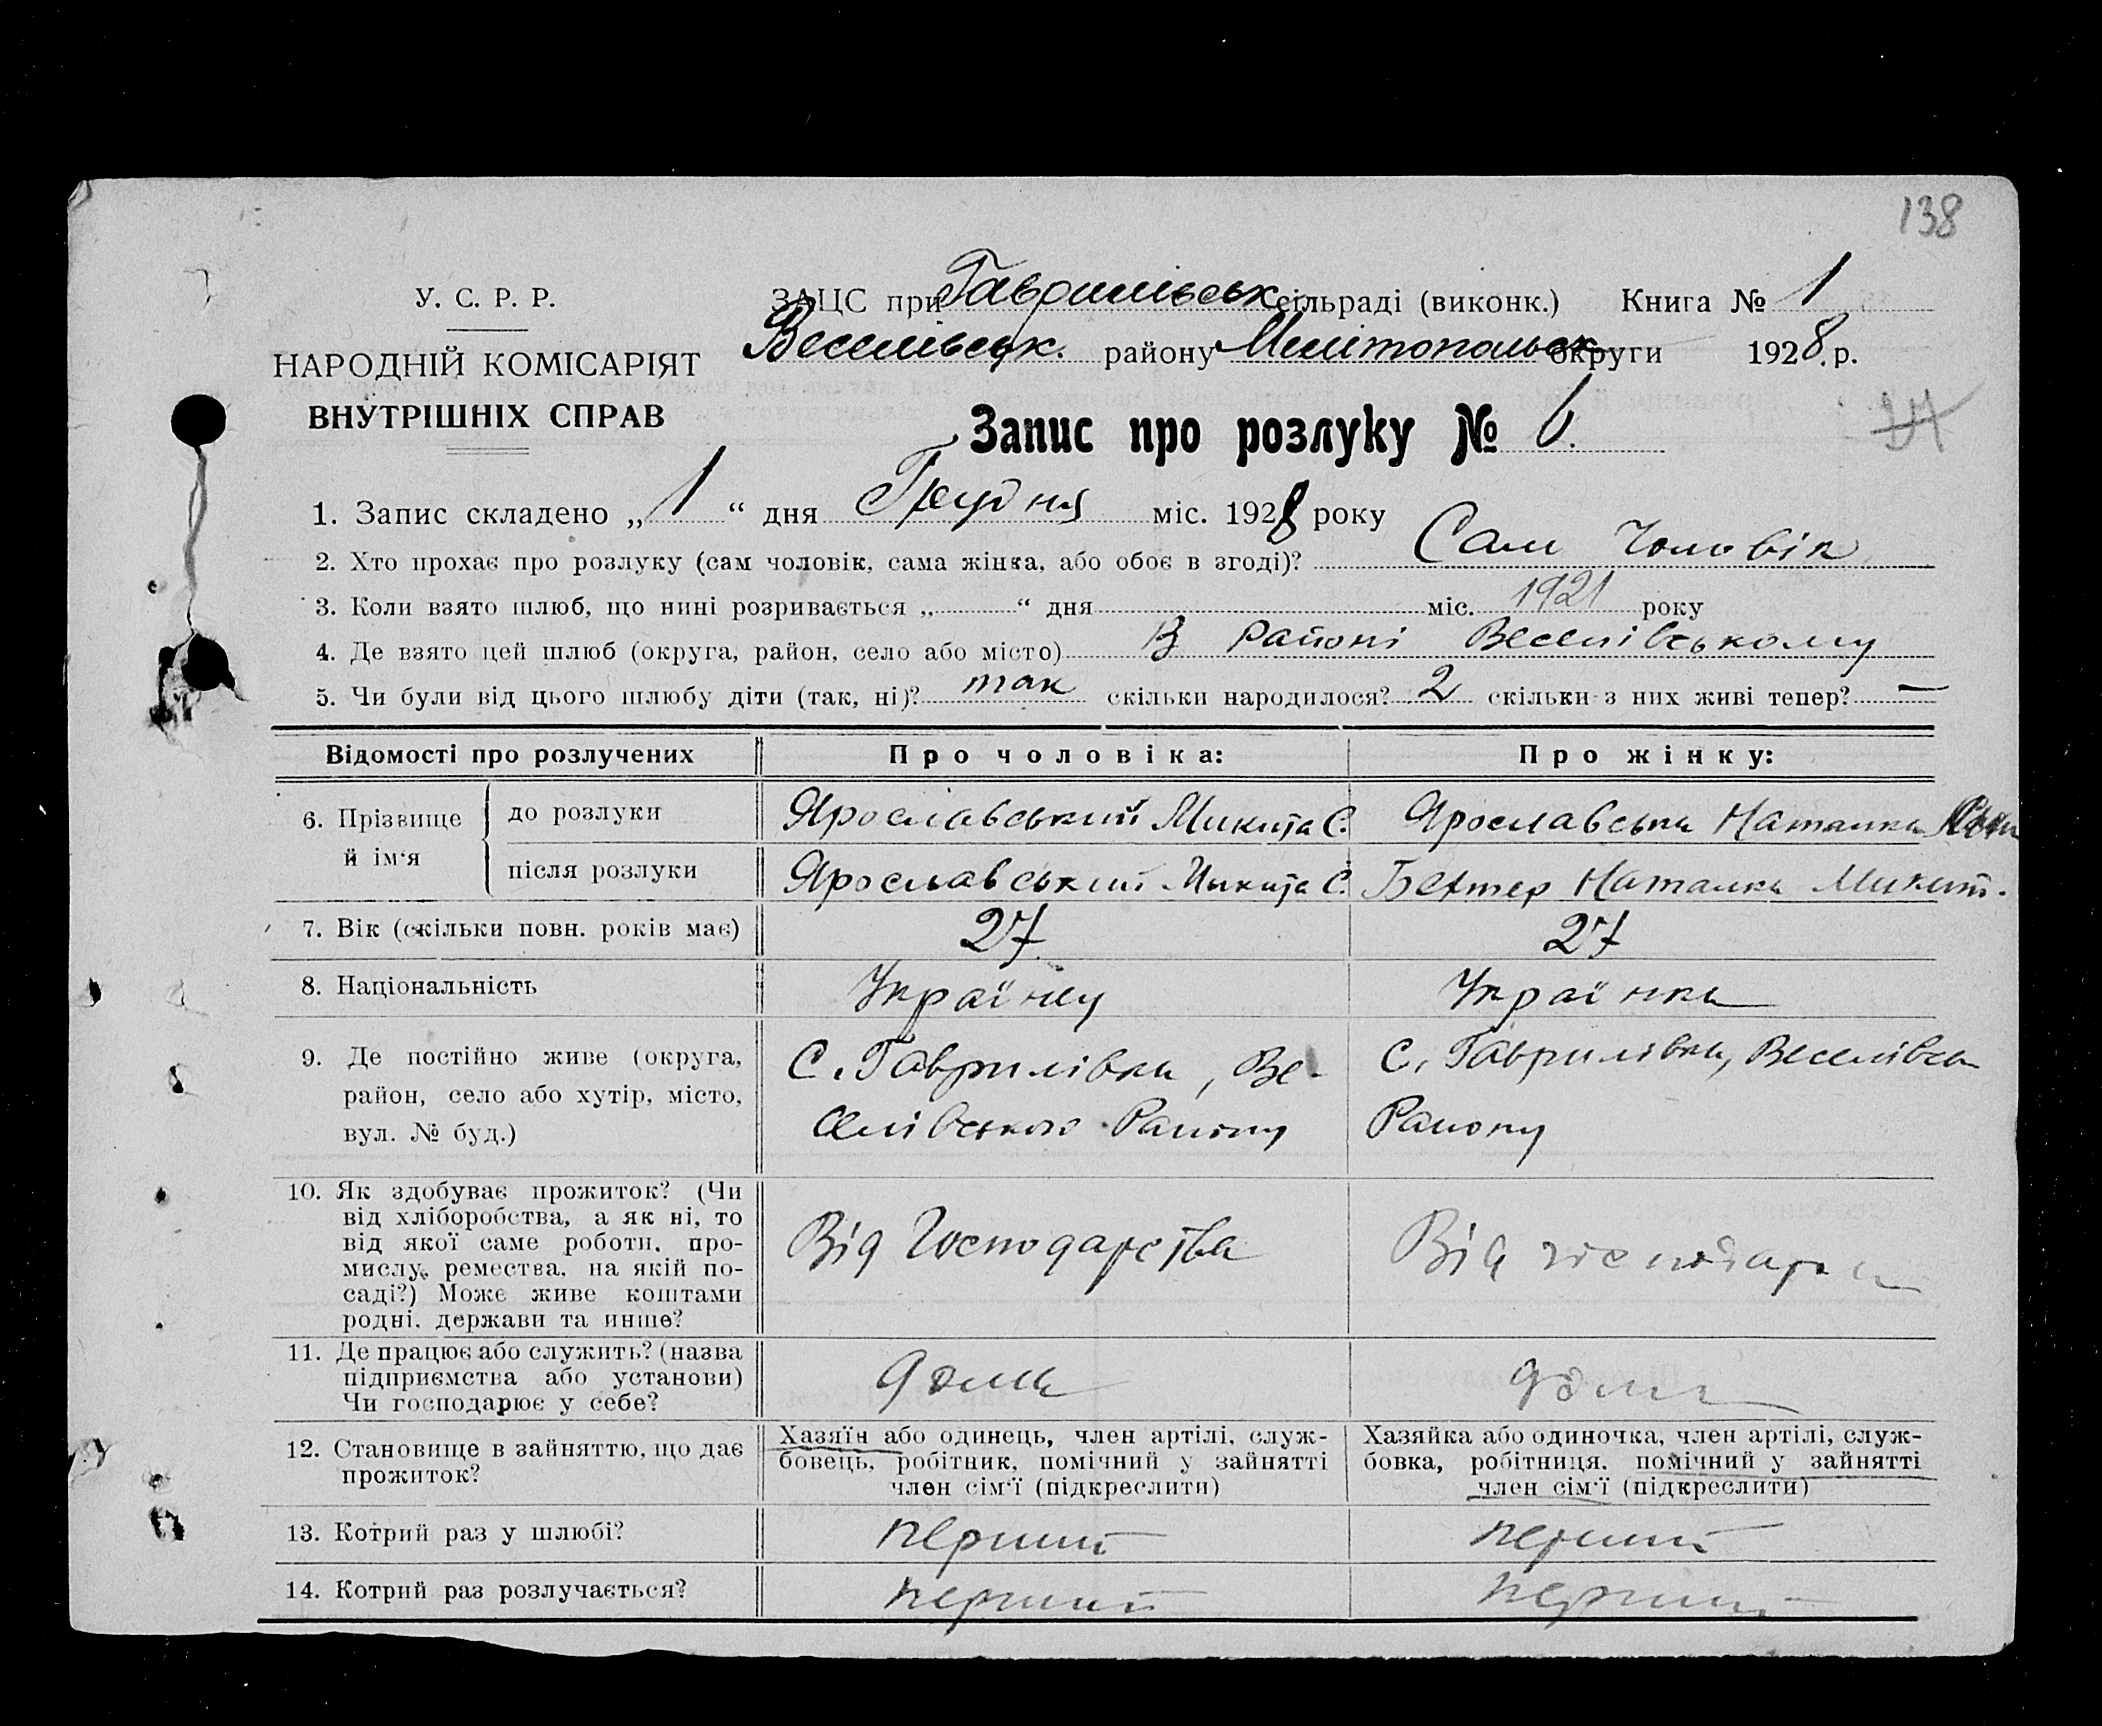 138
У. С. Р. Р.
НАРОДНІЙ КОМІСАРІЯТ
ВНУТРІШНІХ СПРАВ
ЗАЦС при Гаврилівськ сільраді (виконк.) Книга № 1
Веселівськ. району Мелітопольськ округи 1928 р.
Запис про розлуку № 6.
1. Запис складено „1“ дня Грудня міс. 1928 року
2. Хто прохає про розлуку (сам чоловік, сама жінка, або обоє в згоді)? Сам Чоловік
3. Коли взято шлюб, що нині розривається „ “ дня міс. 1921 року
4. Де взято цей шлюб (округа, район, село або місто) В районі Веселівському
5. Чи були від цього шлюбу діти (так, ні)? так скільки народилося? 2 скільки з них живі тепер? —
Відомості про розлучених Про чоловіка: Про жінку:
6. Прізвище й ім‘я
до розлуки Ярославський Микита С. Ярославська Наталка
після розлуки Ярославський Микита С. Бехтер Наталка Микит.
7. Вік (скільки повн. років має) 27 27
8. Національність Українец Українка
9. Де постійно живе (округа,
район, село або хутір, місто,
вул. № буд.)
С. Гаврилівка, Ве-
селівського Району
С. Гаврилівка, Веселівськ
Району
10. Як здобуває прожиток? (Чи
від хліборобства, а як ні, то
від якої саме роботи, про-
мислу, ремества, на якій по-
саді?) Може живе коштами
родні, держави та инше?
Від Господарства
Від господарс
11. Де працює або служить? (назва
підприємства або установи)
Чи господарює у себе?
дома
дома
12. Становище в зайняттю, що дає
прожиток?
Хазяїн або одинець, член артілі, служ-
бовець, робітник, помічний у зайнятті
член сім‘ї (підкреслити)
Хазяйка або одиночка, член артілі, служ-
бовка, робітниця, помічний у зайнятті
член сім‘ї (підкреслити)
13. Котрий раз у шлюбі? перший перший
14. Котрий раз розлучається? перший перший